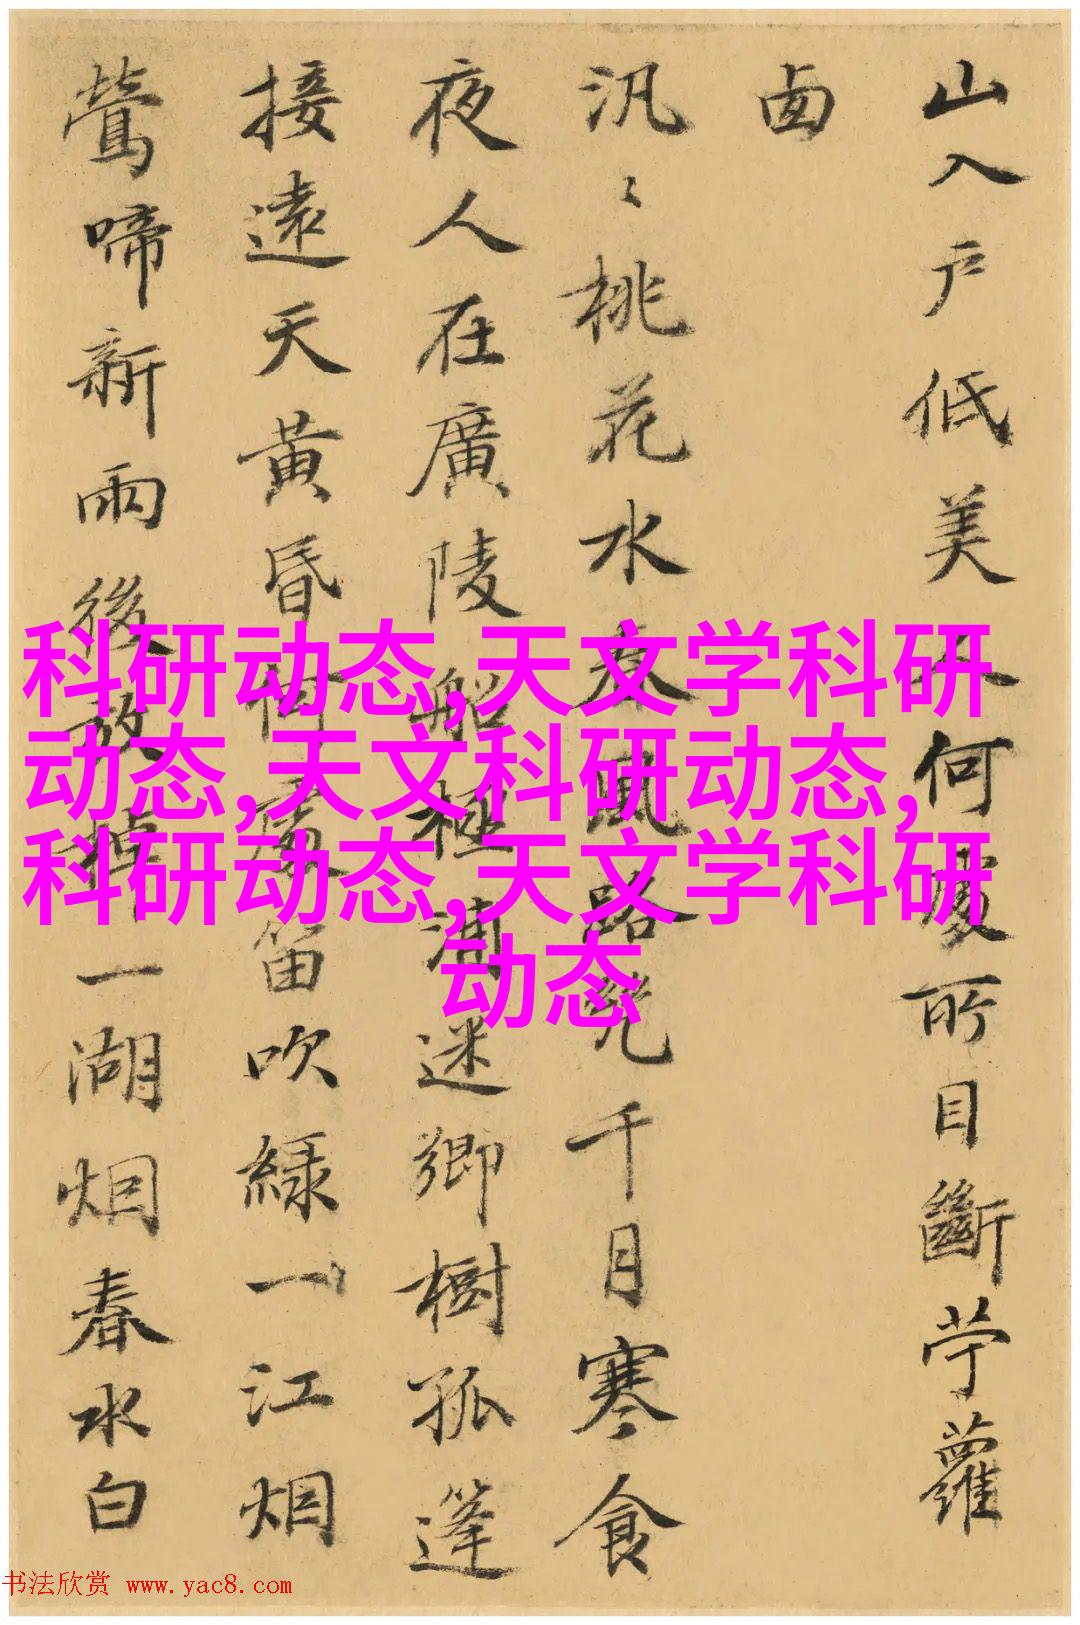 山入户低美人何處所目斷苧蘿
西
汎〻桃花水春風路幾千月寒食
夜人在廣陵船極浦迷鄉樹孤篷
接遠天黃昏何處笛吹綠一江烟
鶯啼新雨後放棹一湖烟春水白
科研动态,天文学科研
动态,天文科研动态,
科研动态,天文学科研
动态
书法欣赏 www.yac8.com